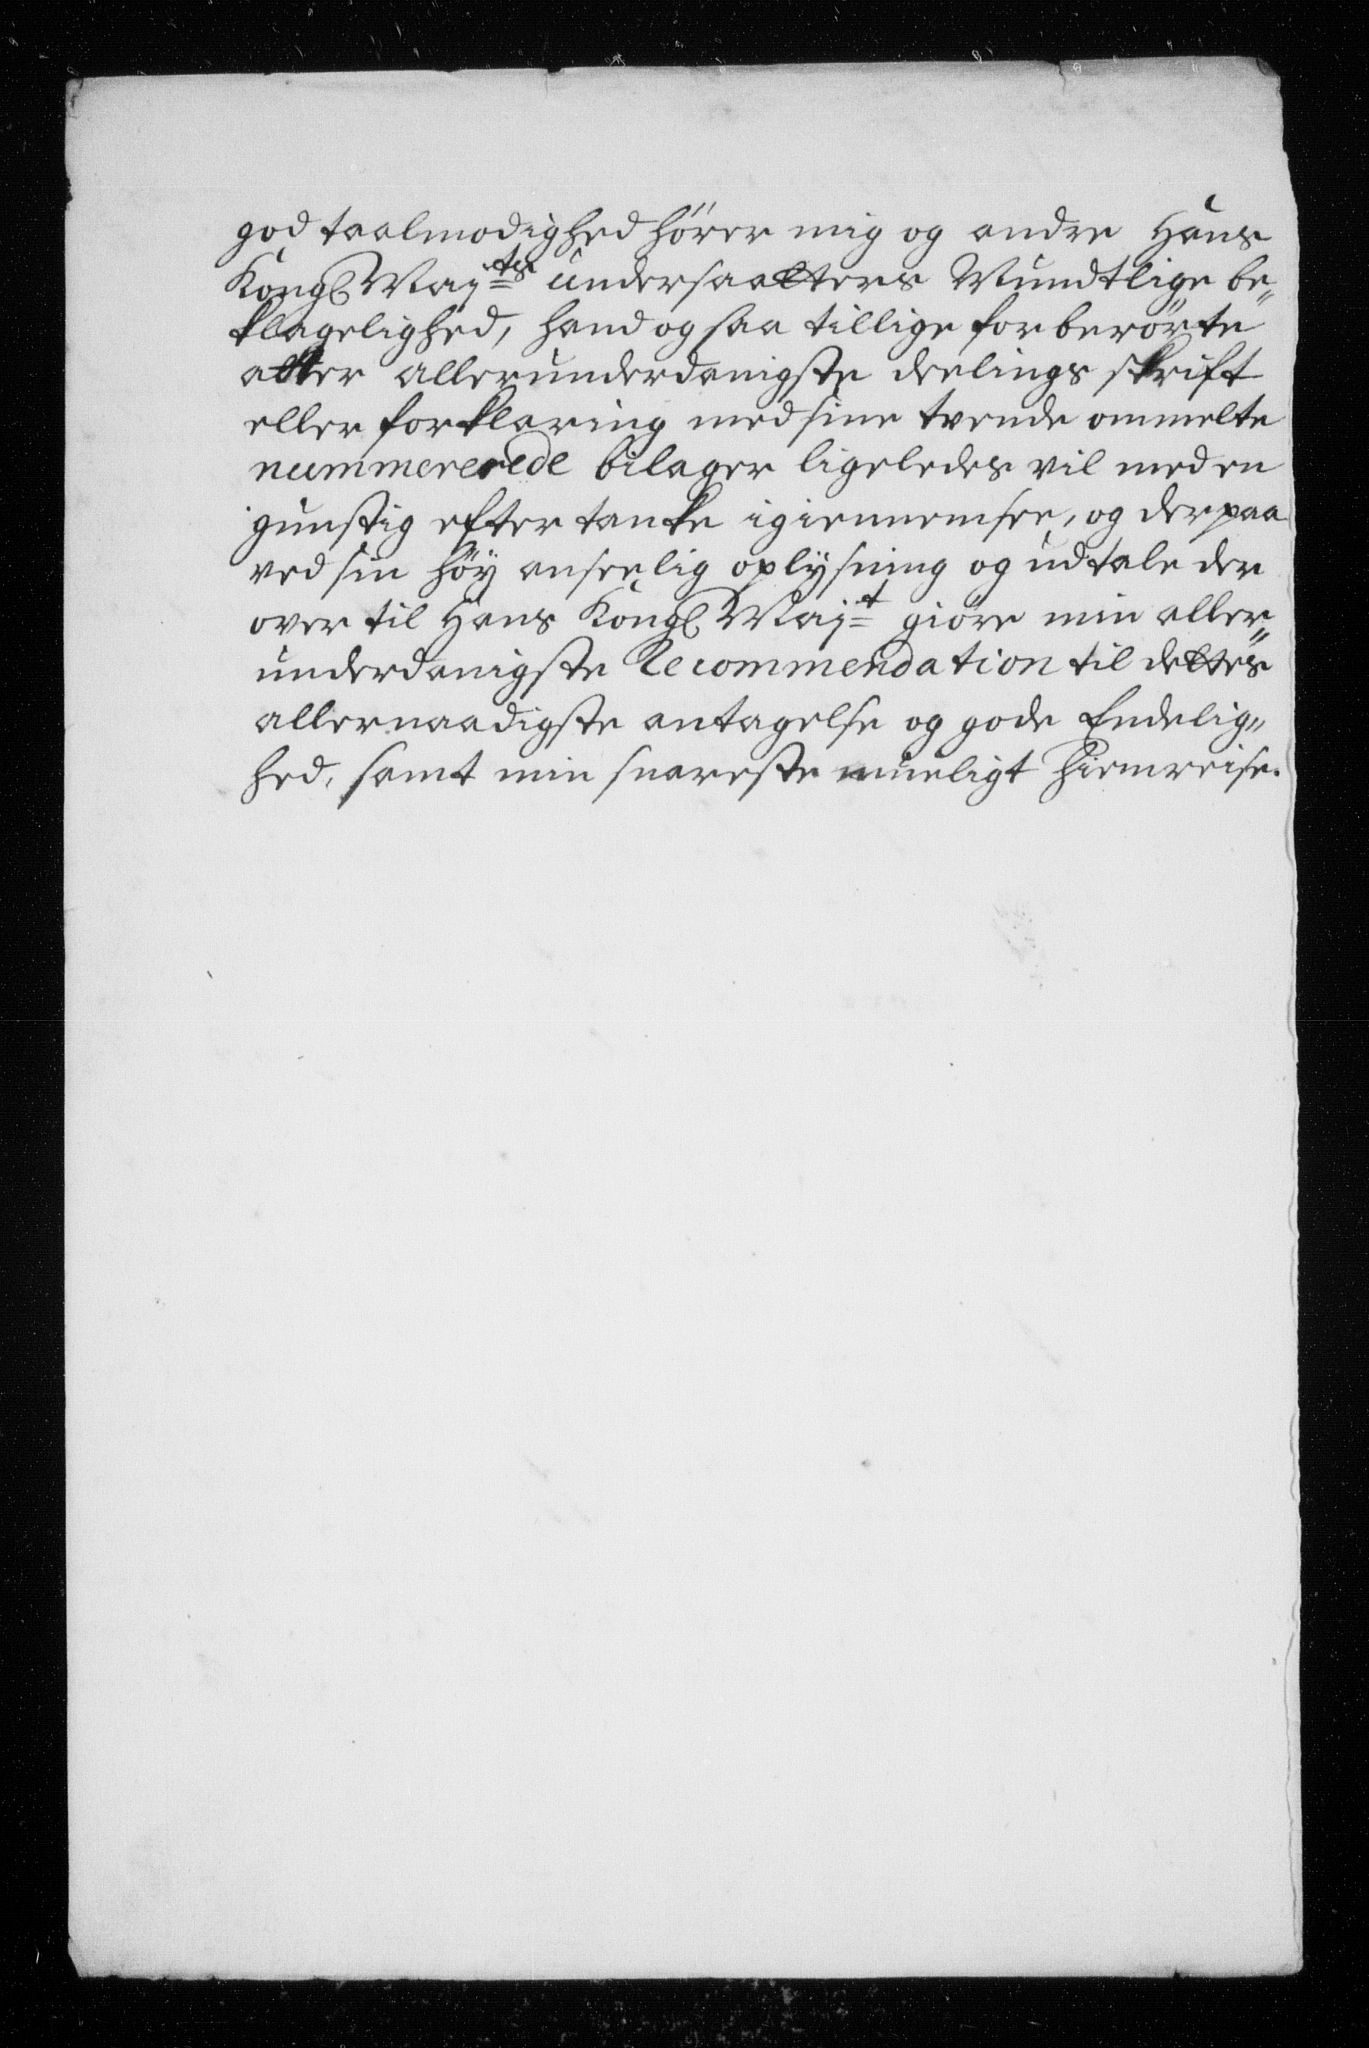 god taalmodighed hörer mig og andre Hans
Kongl Maj:ts undersaatters Mundtlige be„
klagelighed, hand og saa tillige forberörte
atter allerunderdanigste deelings skrift
eller forklaring med sine tvende ommelte
nummererede bilager ligeledes vil med en
gunstig eftertanke igiennemsee, og derpaa
ved sin höy anseelig oplysning og udtale der
over til Hans Kongl Maj:t giöre min aller„
underdanigste Recommendation til dettes
allernaadigste antagelse og gode Endelig„
hed, samt min snareste mueligt hiemreise.